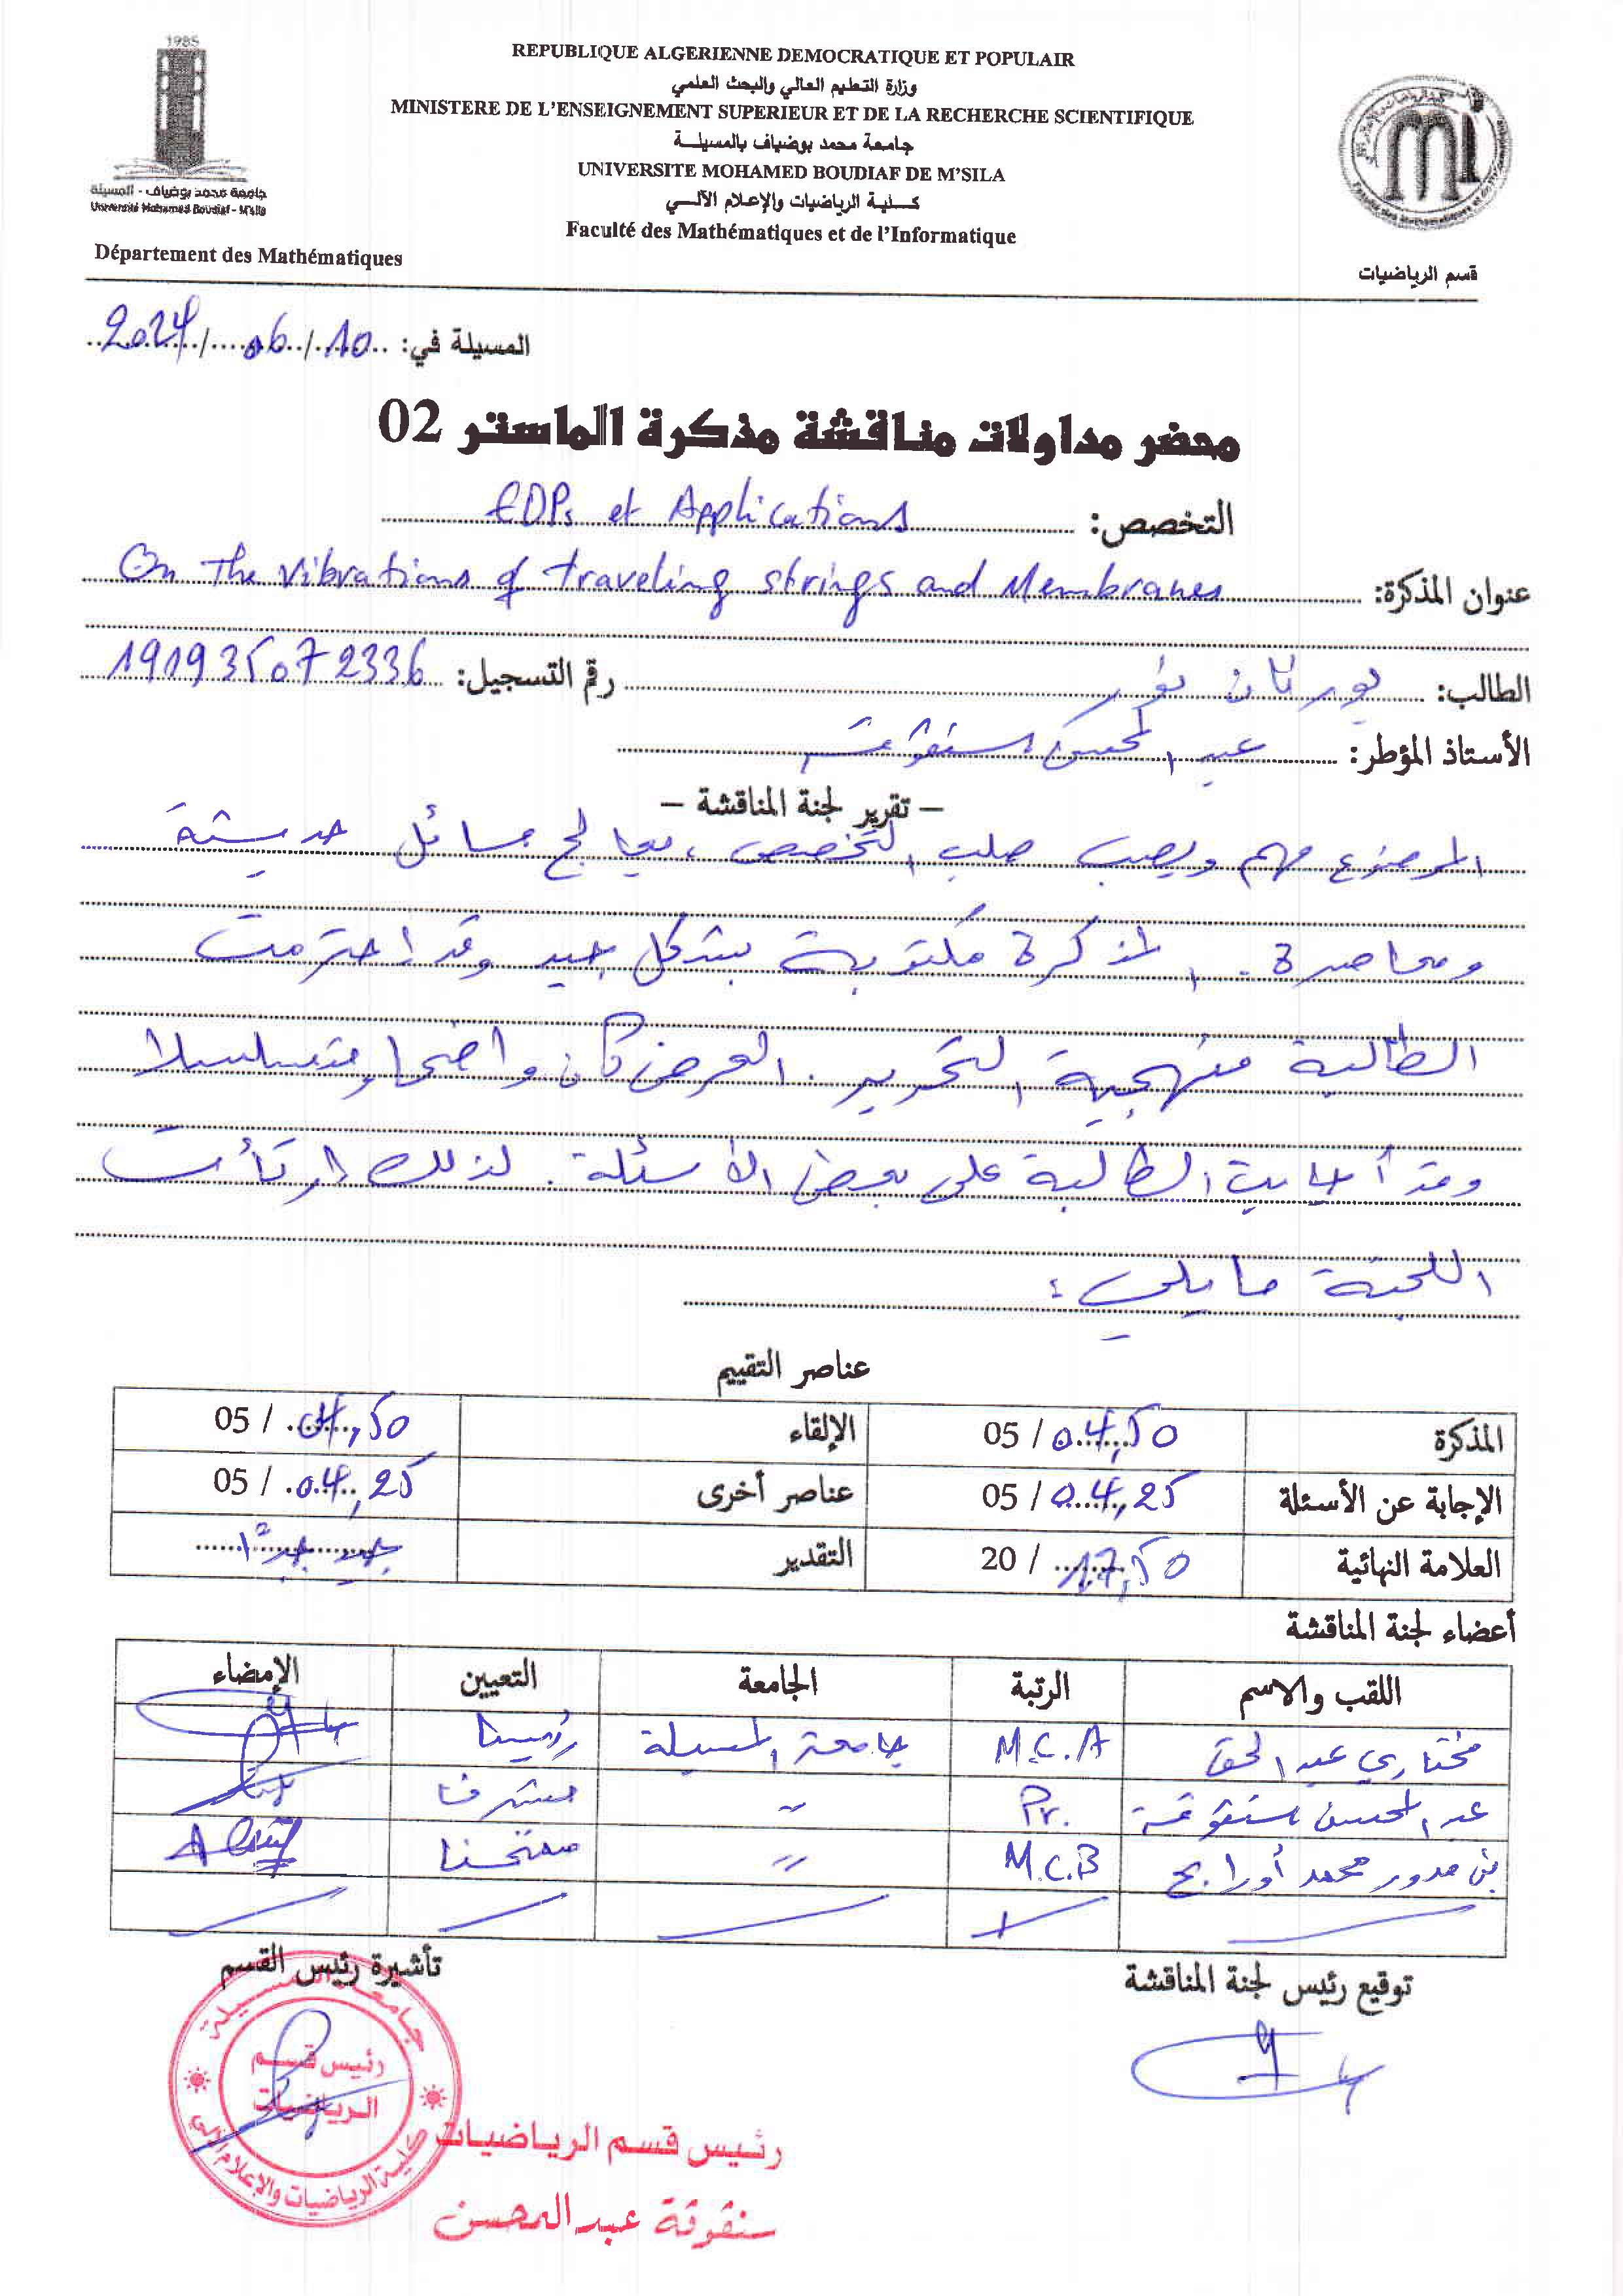 1985
جامعة محمد بوضياف - المسيلة
Université Mohamed Boudiaf - M'sila
REPUBLIQUE ALGERIENNE DEMOCRATIQUE ET POPULAIR
وزارة التعليم العالي والبحث العلمي
MINISTERE DE L'ENSEIGNEMENT SUPERIEUR ET DE LA RECHERCHE SCIENTIFIQUE
جامعة محمد بوضياف بالمسيلة
UNIVERSITE MOHAMED BOUDIAF DE M'SILA
كلية الرياضيات والإعلام الآلي
Faculté des Mathématiques et de l'Informatique
Département des Mathématiques
قسم الرياضيات
المسيلة في: 10/06/2024
محضر مداولات مناقشة مذكرة الماستر 02
التخصص: EDPs et Applications
عنوان المذكرة: On The Vibrations of traveling strings and Membranes
الطالب: بورنان نور رقم التسجيل: 191935072336
الأستاذ المؤطر: عبد المحسن سنقوقة
– تقرير لجنة المناقشة –
الموضوع مهم ويصب صلب التخصص، يعالج مسائل حديثة
ومعاصرة. المذكرة مكتوبة بشكل جيد وقد إحترمت
الطالبة منهجية التحرير. العرض كان واضحا ومتسلسلا
وقد أجابت الطالبة على بعض الأسئلة. لذلك ارتأت
اللجنة ما يلي:
عناصر التقييم
المذكرة 04,50 / 05 الإلقاء 04,50 / 05
الإجابة عن الأسئلة 04,25 / 05 عناصر أخرى 04,25 / 05
العلامة النهائية 17,50 / 20 التقدير جيد جدا
أعضاء لجنة المناقشة
اللقب والاسم الرتبة الجامعة التعيين الإمضاء
مختاري عبد الحق M.C.A جامعة المسيلة رئيسا
عبد المحسن سنقوقة Pr. " مشرفا
بن مدور محمد أورابح M.C.B " ممتحنا
توقيع رئيس لجنة المناقشة تأشيرة رئيس القسم
جامعة المسيلة
رئيس قسم
الرياضيات
كلية الرياضيات والإعلام الآلي
رئيس قسم الرياضيات
سنقوقة عبد المحسن